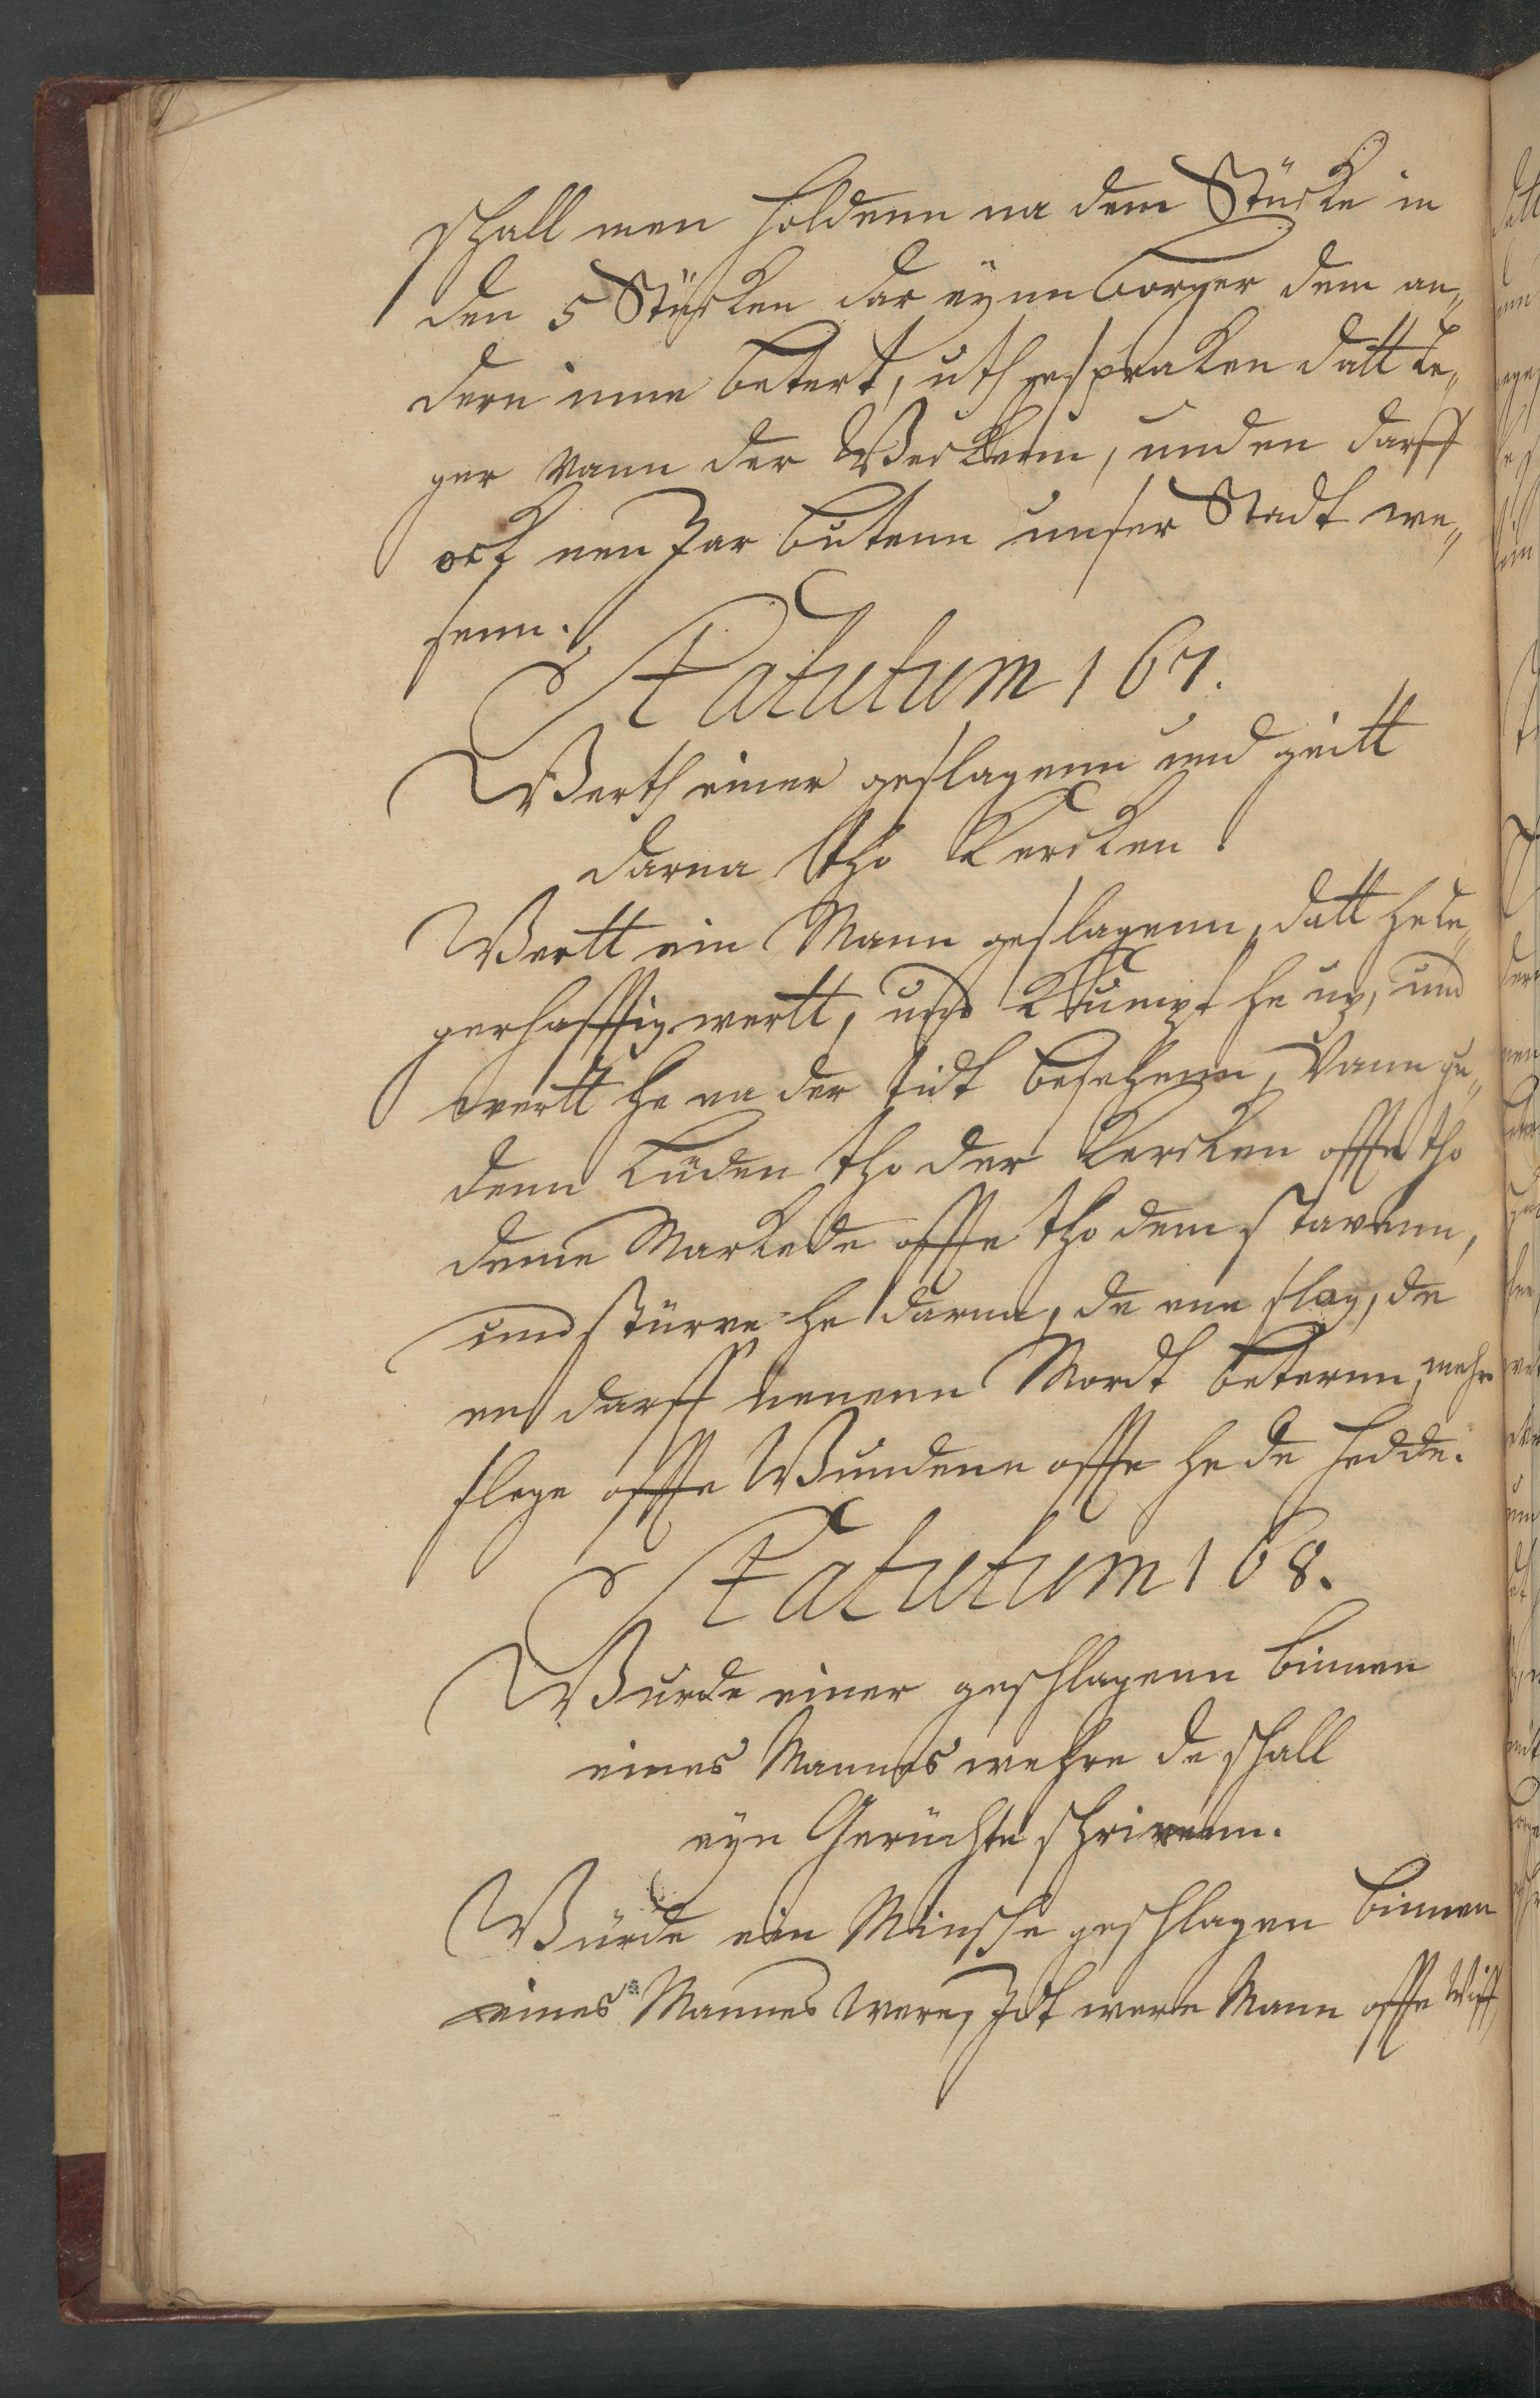 schall men holdenn na dem Stücke in
den 5 Stücken dar eynn borger dem an„
dern inne betert, uthgespraken datt le„
ger vann der Weckenn, unden darff
ock nen Jar butenn unser Stadt we„
senn.
Statutum 167.
Werth einer geslagenn und geitt
darna tho Kercken.
Wertt ein Mann geslagenn, datt he le„
gerhafftig wertt, und kumpt he up, und
wertt he na der tidt besehenn, vann gu„
denn Lüden tho der Kercken offte tho
deme Markede offte tho dem stavenn,
und stürve he darna, de enn slog, de
en darff nenenn Mordt beternn, mehr
slege offte Wundenn offte he de hedde.
Statutum 168.
Wurde einer geschlagenn binnen
eines Mannes wehre de schall
eyn Gerüchte schrivenn.
Würde ein Minsche geschlagen binnen
eines Mannes were, Idt were Mann offte Wiff